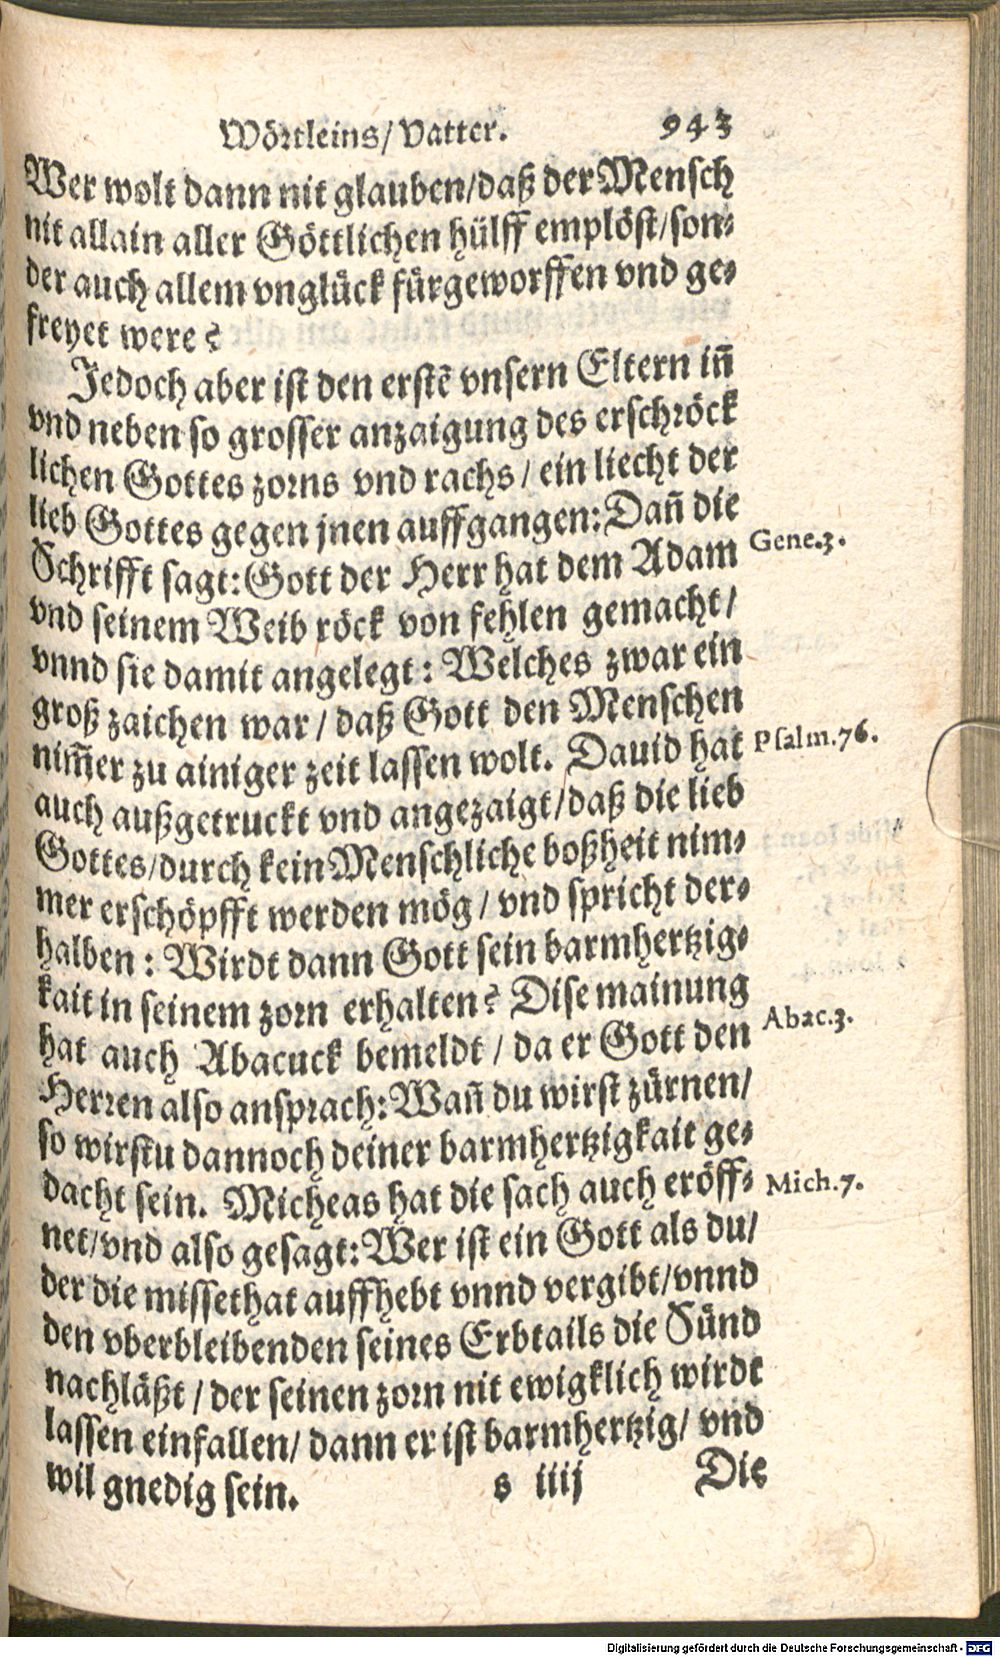 Wörtleins/ Vatter. 943
Wer wolt dann nit glauben/daß der Mensch
nit allain aller Göttlichen hülff emplöst/son⸗
der auch allem vnglück fürgeworffen vnd ge⸗
freyet were?
Jedoch aber ist den erstē vnsern Eltern iñ
vnd neben so grosser anzaigung des erschröck
lichen Gottes zorns vnd rachs / ein liecht der
lieb Gottes gegen jnen auffgangen: Dañ die
Schrifft sagt: Gott der Herr hat dem Adam
Gene.3.
vnd seinem Weib röck von fehlen gemacht/
vnnd sie damit angelegt: Welches zwar ein
groß zaichen war / daß Gott den Menschen
nim̃er zu ainiger zeit lassen wolt. Dauid hat
Psalm.76.
auch außgetruckt vnd angezaigt/daß die lieb
Gottes/durch kein Menschliche boßheit nim⸗
mer erschöpfft werden mög / vnd spricht der⸗
halben: Wirdt dann Gott sein barmhertzig⸗
kait in seinem zorn erhalten? Dise mainung
hat auch Abacuck bemeldt / da er Gott den
Abac.3.
Herren also ansprach: Wañ du wirst zürnen/
so wirstu dannoch deiner barmhertzigkait ge⸗
dacht sein. Micheas hat die sach auch eröff⸗
Mich.7.
net/vnd also gesagt: Wer ist ein Gott als du/
der die missethat auffhebt vnnd vergibt/vnnd
den vberbleibenden seines Erbtails die Sünd
nachläßt / der seinen zorn nit ewigklich wirdt
lassen einfallen/ dann er ist barmhertzig/ vnd
wil gnedig sein.
s iiij Die
Digitalisierung gefördert durch die Deutsche Forschungsgemeinschaft - DFG